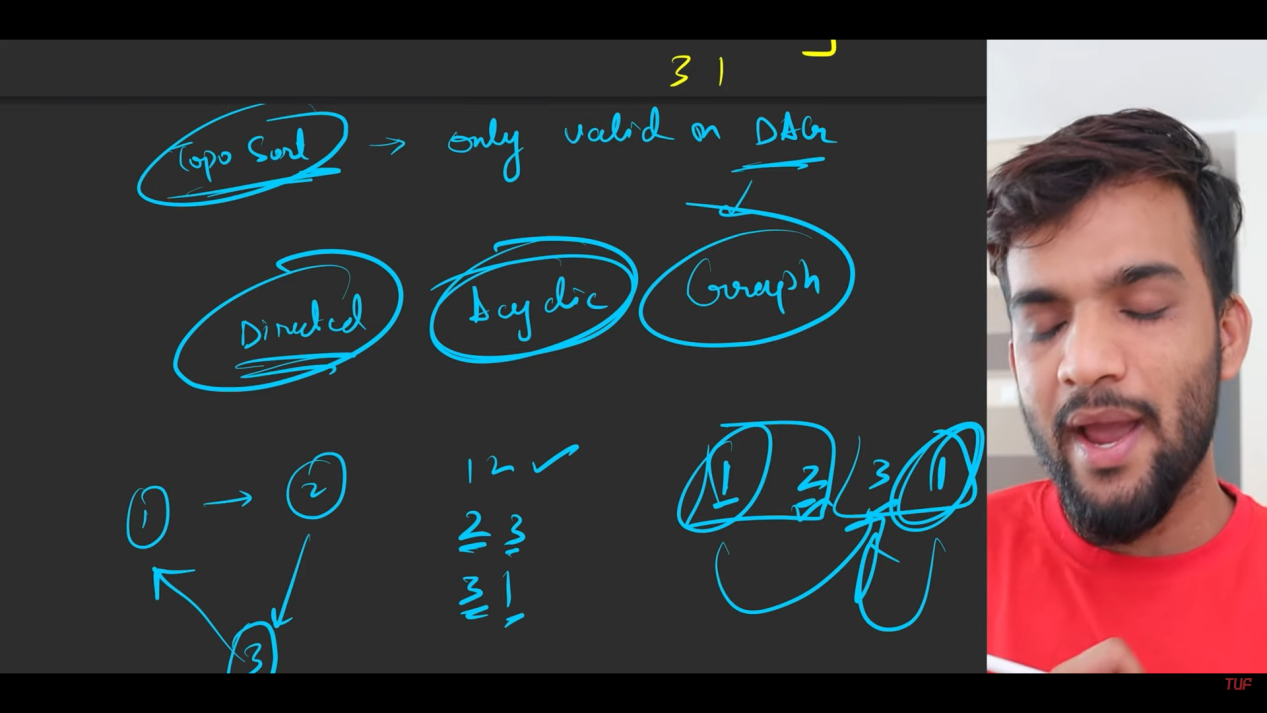 3 1
Topo Sort → only valid on DAG
Directed Acyclic Graph
1 → 2
3
1 2 ✓
2 3
3 1
1 2 3 1
TUF